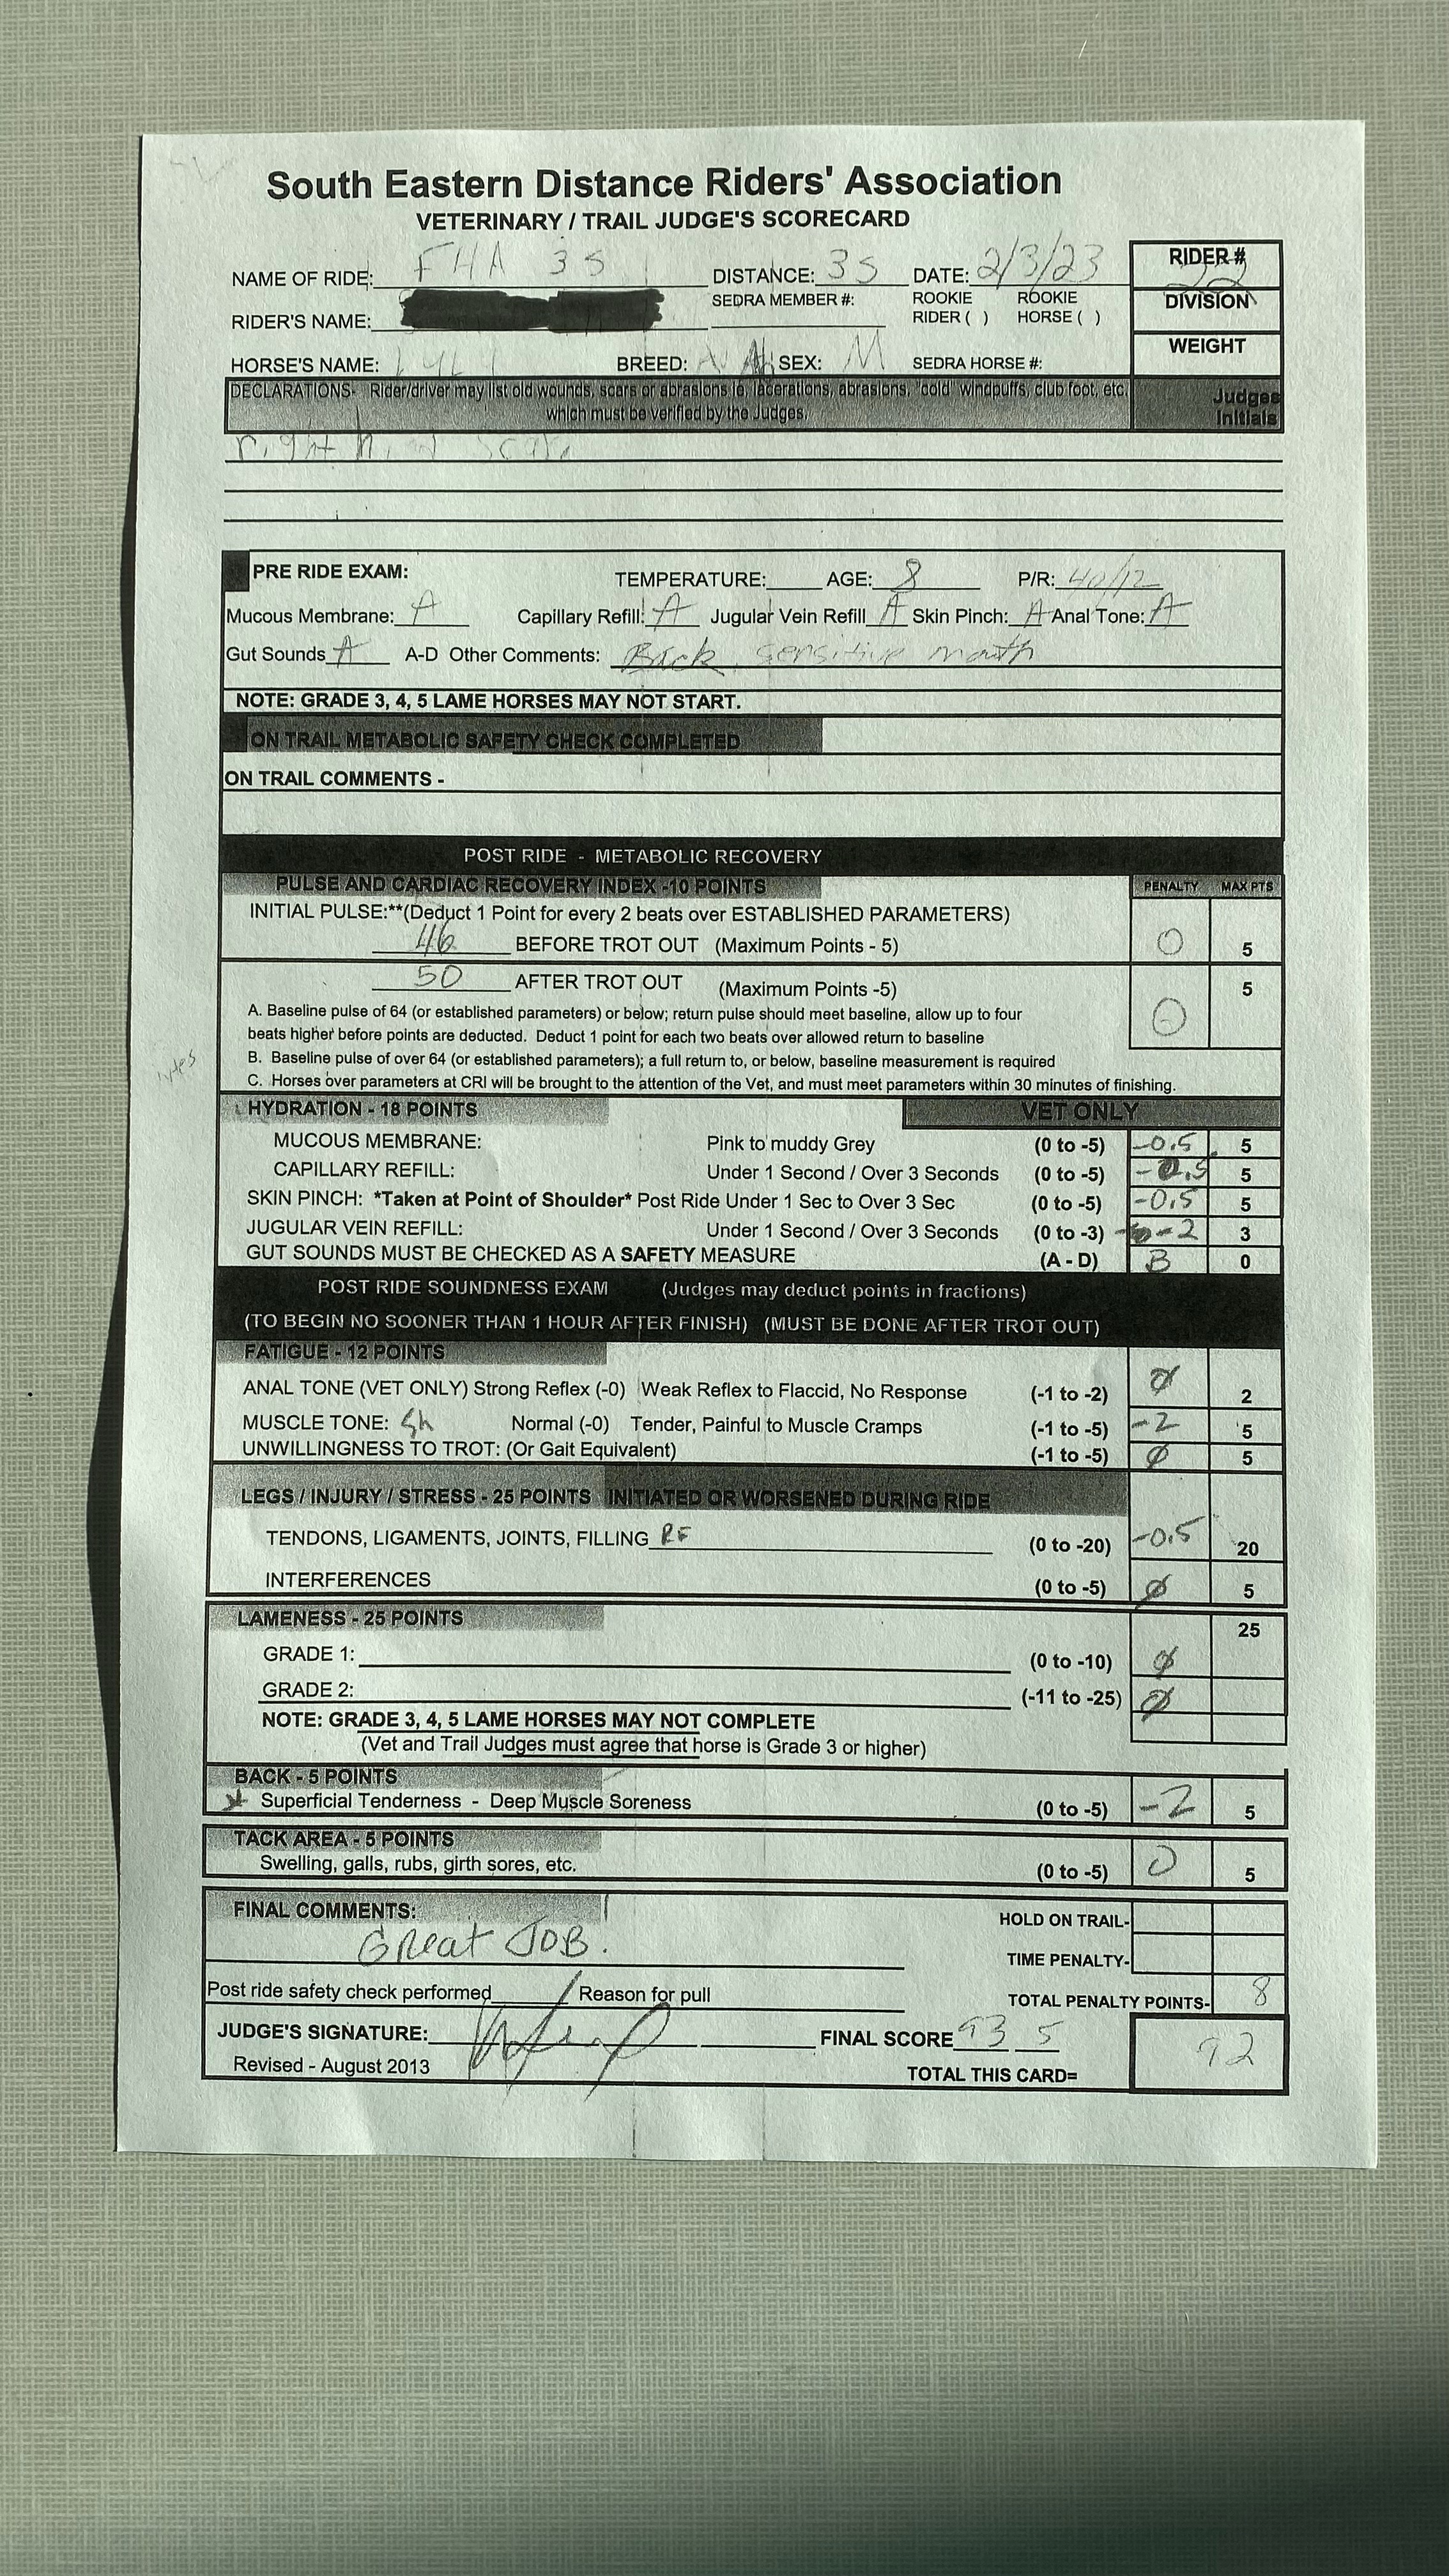 South Eastern Distance Riders' Association
VETERINARY / TRAIL JUDGE'S SCORECARD
NAME OF RIDE: FHA 35 DISTANCE: 35 DATE: 2/3/23 RIDER # 22
RIDER'S NAME: SEDRA MEMBER #: ROOKIE RIDER ( ) ROOKIE HORSE ( ) DIVISION
HORSE'S NAME: BREED: SEX: M SEDRA HORSE #: WEIGHT
DECLARATIONS- Rider/driver may list old wounds, scars or abrasions ie, lacerations, abrasions, "cold" windpuffs, club foot, etc. Judges
which must be verified by the Judges. Initials
right hind
PRE RIDE EXAM: TEMPERATURE: AGE: 8 P/R: 40/12
Mucous Membrane: A Capillary Refill: A Jugular Vein Refill A Skin Pinch: A Anal Tone: A
Gut Sounds A A-D Other Comments: Back sensitive mouth
NOTE: GRADE 3, 4, 5 LAME HORSES MAY NOT START.
ON TRAIL METABOLIC SAFETY CHECK COMPLETED
ON TRAIL COMMENTS -
POST RIDE - METABOLIC RECOVERY
PULSE AND CARDIAC RECOVERY INDEX -10 POINTS PENALTY MAX PTS
INITIAL PULSE:**(Deduct 1 Point for every 2 beats over ESTABLISHED PARAMETERS)
46 BEFORE TROT OUT (Maximum Points - 5) 0 5
50 AFTER TROT OUT (Maximum Points -5) 0 5
A. Baseline pulse of 64 (or established parameters) or below; return pulse should meet baseline, allow up to four
beats higher before points are deducted. Deduct 1 point for each two beats over allowed return to baseline
B. Baseline pulse of over 64 (or established parameters); a full return to, or below, baseline measurement is required
C. Horses over parameters at CRI will be brought to the attention of the Vet, and must meet parameters within 30 minutes of finishing.
HYDRATION - 18 POINTS VET ONLY
MUCOUS MEMBRANE: Pink to muddy Grey (0 to -5) -0.5 5
CAPILLARY REFILL: Under 1 Second / Over 3 Seconds (0 to -5) 5
SKIN PINCH: *Taken at Point of Shoulder* Post Ride Under 1 Sec to Over 3 Sec (0 to -5) -0.5 5
JUGULAR VEIN REFILL: Under 1 Second / Over 3 Seconds (0 to -3) -2 3
GUT SOUNDS MUST BE CHECKED AS A SAFETY MEASURE (A - D) B 0
POST RIDE SOUNDNESS EXAM (Judges may deduct points in fractions)
(TO BEGIN NO SOONER THAN 1 HOUR AFTER FINISH) (MUST BE DONE AFTER TROT OUT)
FATIGUE - 12 POINTS
ANAL TONE (VET ONLY) Strong Reflex (-0) Weak Reflex to Flaccid, No Response (-1 to -2) 0 2
MUSCLE TONE: Normal (-0) Tender, Painful to Muscle Cramps (-1 to -5) -2 5
UNWILLINGNESS TO TROT: (Or Gait Equivalent) (-1 to -5) 0 5
LEGS / INJURY / STRESS - 25 POINTS INITIATED OR WORSENED DURING RIDE
TENDONS, LIGAMENTS, JOINTS, FILLING RF (0 to -20) -0.5 20
INTERFERENCES (0 to -5) 0 5
LAMENESS - 25 POINTS 25
GRADE 1: (0 to -10) 0
GRADE 2: (-11 to -25) 0
NOTE: GRADE 3, 4, 5 LAME HORSES MAY NOT COMPLETE
(Vet and Trail Judges must agree that horse is Grade 3 or higher)
BACK - 5 POINTS
Superficial Tenderness - Deep Muscle Soreness (0 to -5) -2 5
TACK AREA - 5 POINTS
Swelling, galls, rubs, girth sores, etc. (0 to -5) 0 5
FINAL COMMENTS: HOLD ON TRAIL-
Great JOB. TIME PENALTY-
Post ride safety check performed Reason for pull TOTAL PENALTY POINTS- 8
JUDGE'S SIGNATURE: FINAL SCORE 93 5
Revised - August 2013 TOTAL THIS CARD= 92